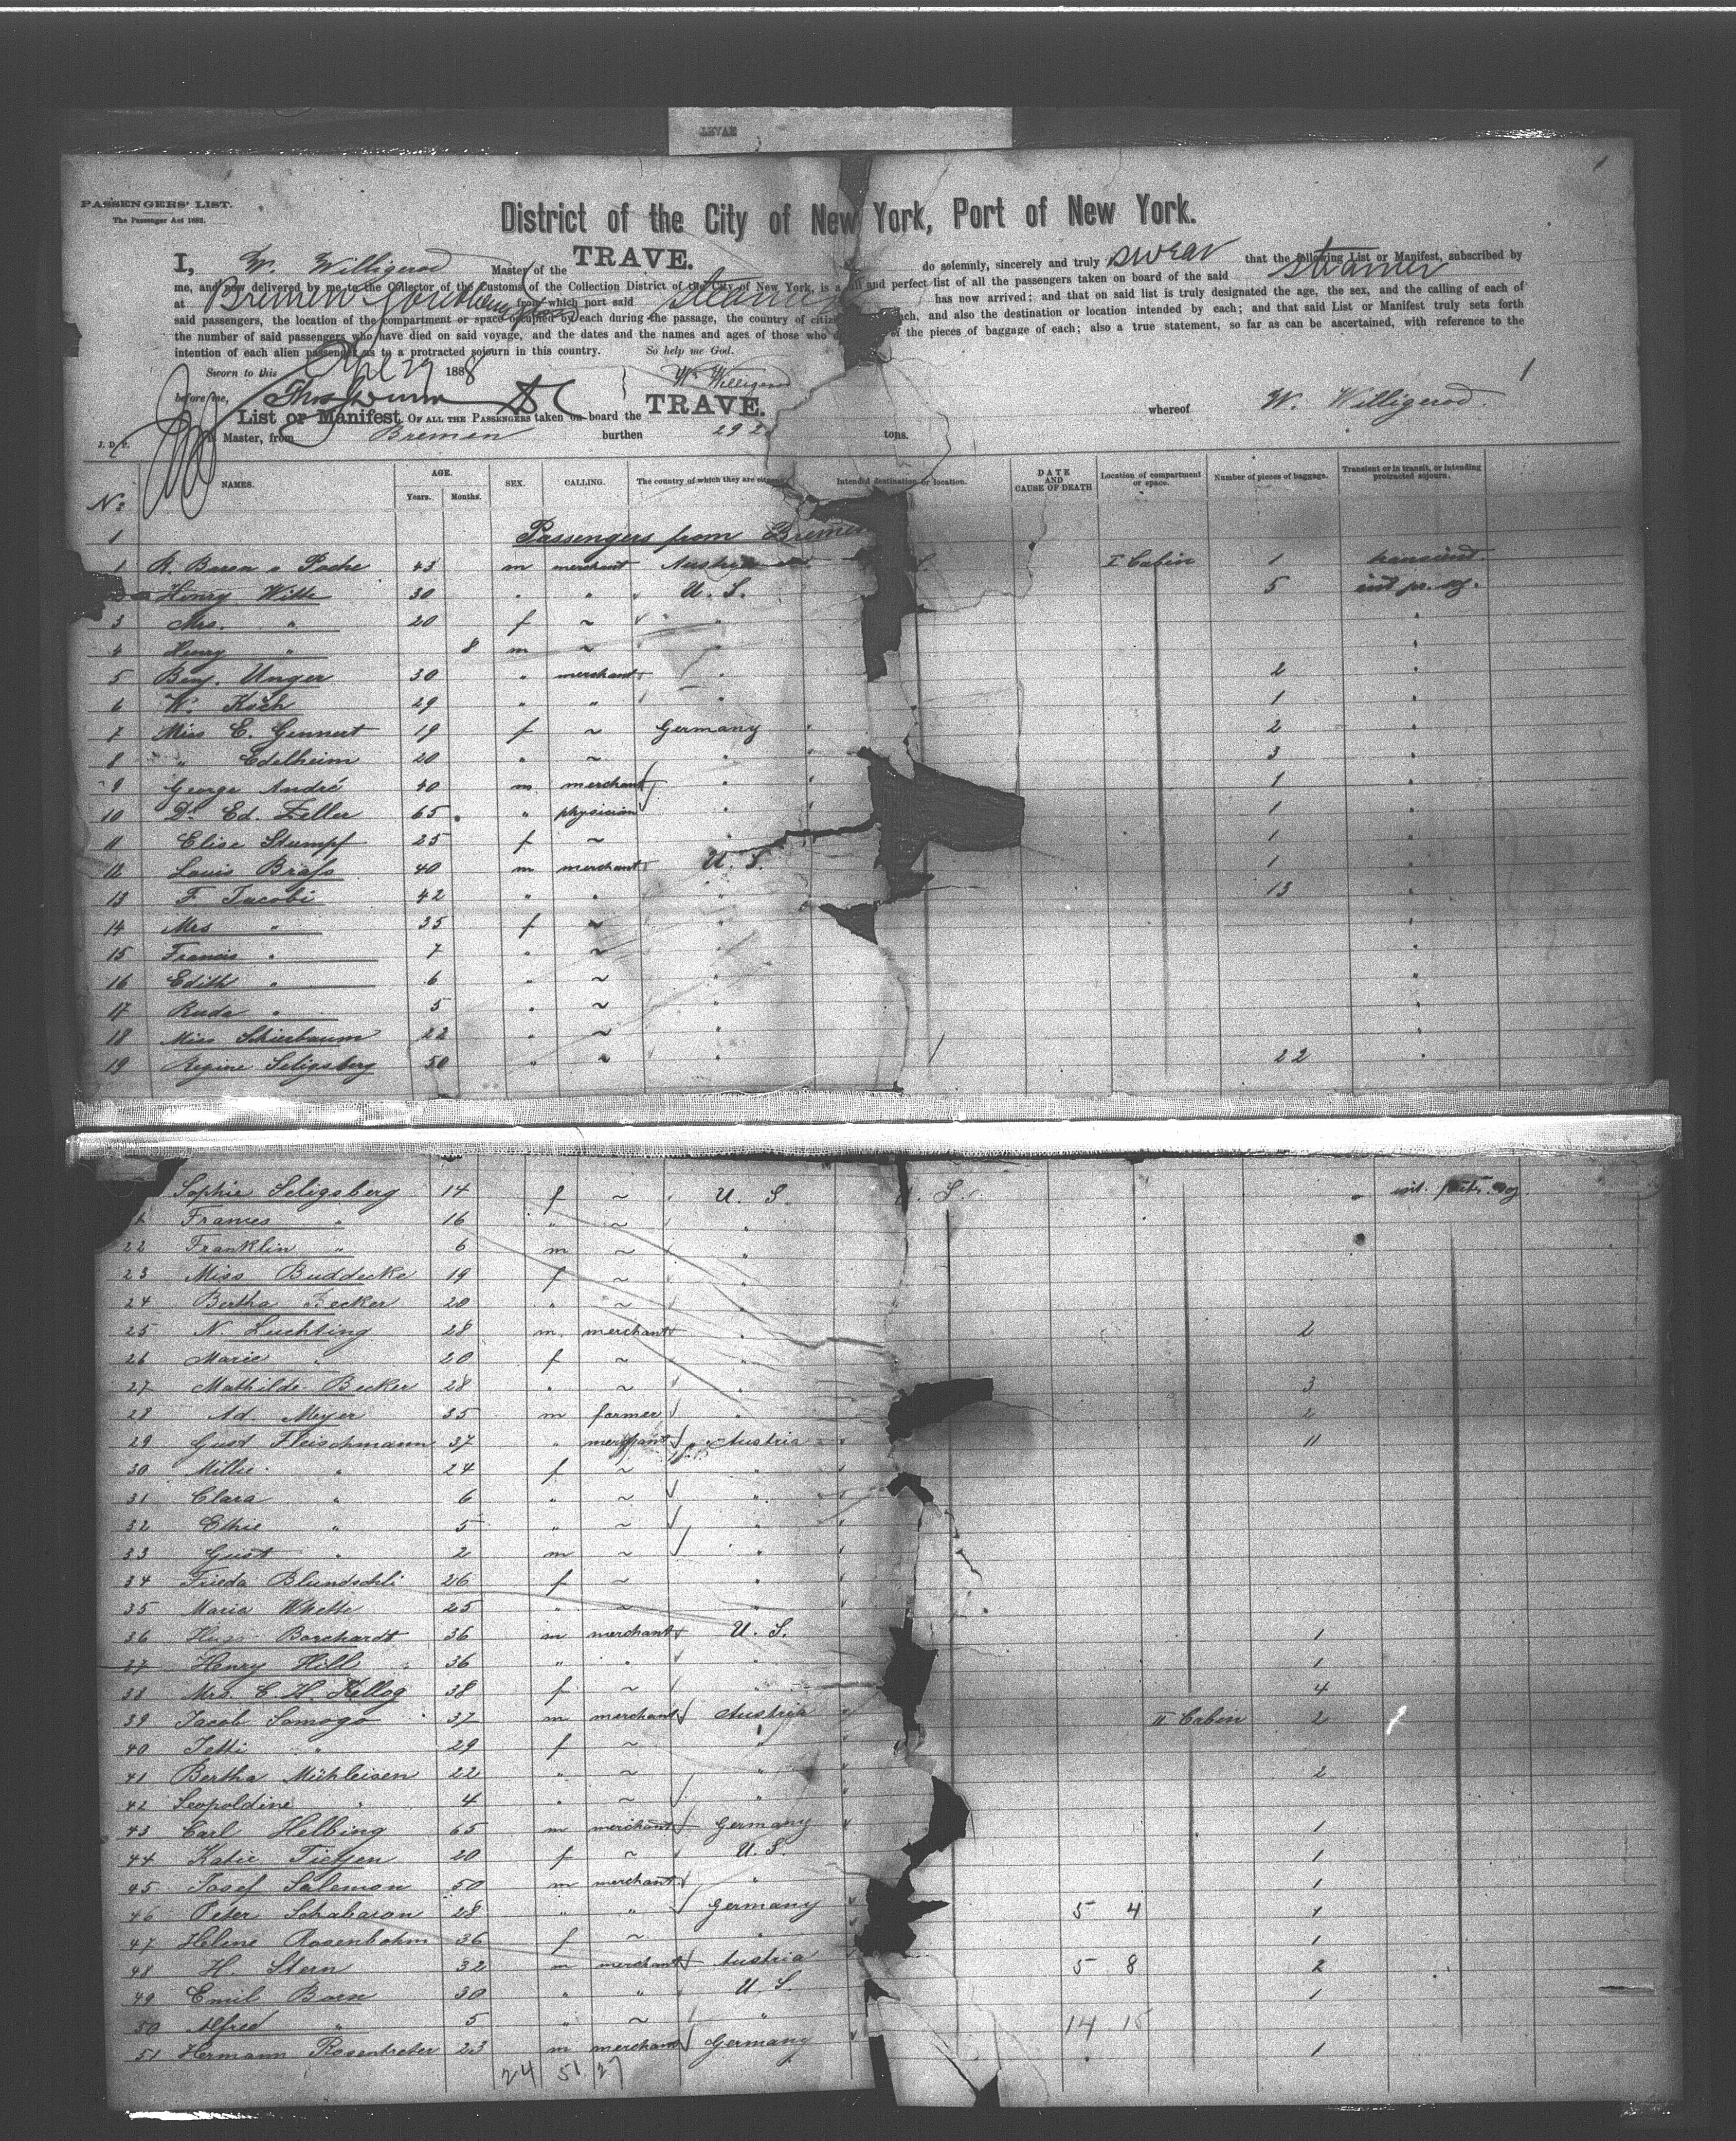 TRAVE
1
PASSENGERS' LIST.
The Passenger Act 1882.
District of the City of New York, Port of New York.
I, W. Willigerod Master of the TRAVE. do solemnly, sincerely and truly swear that the following List or Manifest, subscribed by
me, and now delivered by me to the Collector of the Customs of the Collection District of the City of New York, is a full and perfect list of all the passengers taken on board of the said steamer
at Bremen from which port said steamer has now arrived; and that on said list is truly designated the age, the sex, and the calling of each of
said passengers, the location of the compartment or space occupied by each during the passage, the country of citiz each, and also the destination or location intended by each; and that said List or Manifest truly sets forth
the number of said passengers who have died on said voyage, and the dates and the names and ages of those who d of the pieces of baggage of each; also a true statement, so far as can be ascertained, with reference to the
intention of each alien passenger as to a protracted sojourn in this country. So help me God.
Sworn to this 1888 W. Willigerod 1
before me,
List or Manifest OF ALL THE PASSENGERS taken on board the TRAVE. whereof W. Willigerod.
J. D. P. Master, from Bremen burthen tons.
No. NAMES. AGE. Years. Months. SEX. CALLING. The country of which they are citizens. Intended destination or location. DATE AND CAUSE OF DEATH Location of compartment or space. Number of pieces of baggage. Transient or in transit, or intending protracted sojourn.
1 Passengers from Bremen
1 Poche 43 m merchant Austria I Cabin 1 transient
Henry Witte 30 " " U. S. 5 int. pr. soj.
3 Mrs. " 20 f ~ "
4 Henry " 8 m ~ "
5 Benj. Unger 30 " merchant " 2 "
6 W. Koch 29 " " " 1 "
7 Miss E. Gennert 19 f ~ Germany " 2 "
8 " Edelheim 20 " ~ " " 3 "
9 George André 40 m merchant " " 1 "
10 Dr. Ed. Zeller 65 " physician " " 1 "
11 Elise Stumpf 25 f ~ " 1 "
12 Louis Brass 40 m merchant U. S. 1 "
13 F. Jacobi 42 " " " 13 "
14 Mrs " 35 f ~ " "
15 Francis " 7 " ~ " "
16 Edith " 6 " ~ " "
17 Rude " 5 " ~ " "
18 Miss Schierbaum 22 " ~ " "
19 Regine Seligsberg 50 " ~ " 22 "
Sophie Seligsberg 14 f ~ U. S. S.
Frances " 16 " ~ "
22 Franklin " 6 m ~ "
23 Miss Buddecke 19 f ~
24 Bertha Becker 20 " ~ "
25 N. Luchting 28 m. merchant " 2
26 Marie " 20 f ~ "
27 Mathilde Becker 28 " ~ " 3
28 Ad. Meyer 35 m farmer " 2
29 Gust Fleischmann 37 " merchant Austria 11
30 Millie " 24 f ~ "
31 Clara " 6 " ~ "
32 " 5 " ~ "
33 Gust " 2 m ~ "
34 Frieda Blundschli 26 f ~ "
35 Maria 25 " ~ "
36 Hugo Borchardt 36 m merchant U. S. 1
37 Henry Hill 36 " " " 1
38 Mrs. C. H. Kellog 38 f ~ " 4
39 Jacob Somogo 37 m merchant Austria II Cabin 2
40 Jetti " 29 f ~ "
41 Bertha Mühleisen 22 " ~ " 2
42 Leopoldine " 4 " ~ "
43 Carl Helbing 65 m merchant Germany 1
44 Katie Tietjen 20 f ~ U. S. 1
45 Josef Salemon 50 m merchant " 1
46 Peter Schabason 28 " " Germany 5 4 1
47 Helene Rosenbohm 36 f ~ " 1
48 H. Stern 32 m merchant Austria 5 8 2
49 Emil Born 30 " " U. S. 1
50 Alfred " 5 " ~ " 14 15
51 Hermann Rosentreter 23 m merchant Germany 1
24 51 27